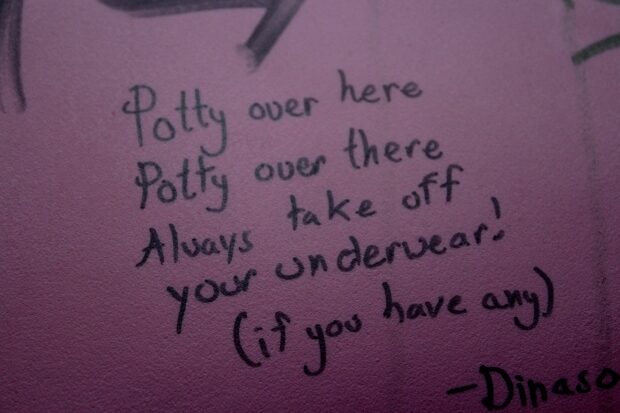 Potty over here
Potty over there
Always take off
your underwear!
(if you have any)
-Dinaso